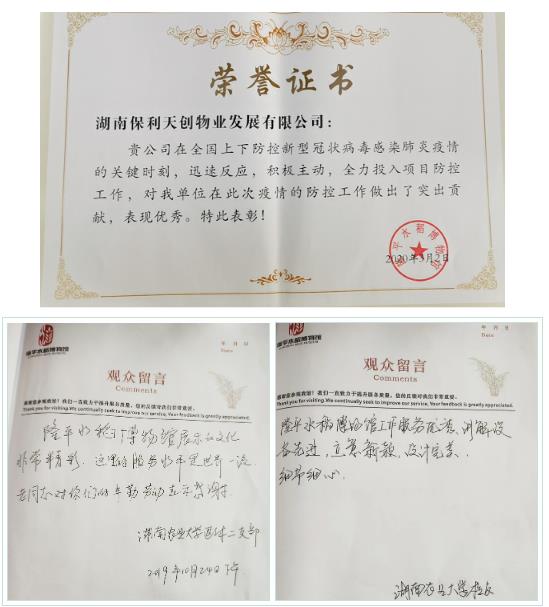 荣誉证书
湖南保利天创物业发展有限公司：
贵公司在全国上下防控新型冠状病毒感染肺炎疫情
的关键时刻，迅速反应，积极主动，全力投入项目防控
工作，对我单位在此次疫情的防控工作做出了突出贡
献，表现优秀。特此表彰！
隆平水稻博物馆
2020年3月2日
隆平水稻博物馆
年 月 日
Date
观众留言
Comments
我们一直致力于提升服务质量，您的反馈对我们非常重要。
Thank you for visiting.We continually seek to improve our service. Your feedback is greatly appreciated.
隆平水稻博物馆展示的文化
非常精彩，这里的服务水平是世界一流
老同志对你们的辛勤劳动表示感谢
湖南农业大学离休二支部
2019年10月24日下午
隆平水稻博物馆
年 月 日
Date
观众留言
Comments
我们一直致力于提升服务质量，您的反馈对我们非常重要。
Thank you for visiting.We continually seek to improve our service. Your feedback is greatly appreciated.
隆平水稻博物馆工作服务优秀，讲解设
备先进，立意新颖，设计完美，
细节细心
湖南农业大学校友